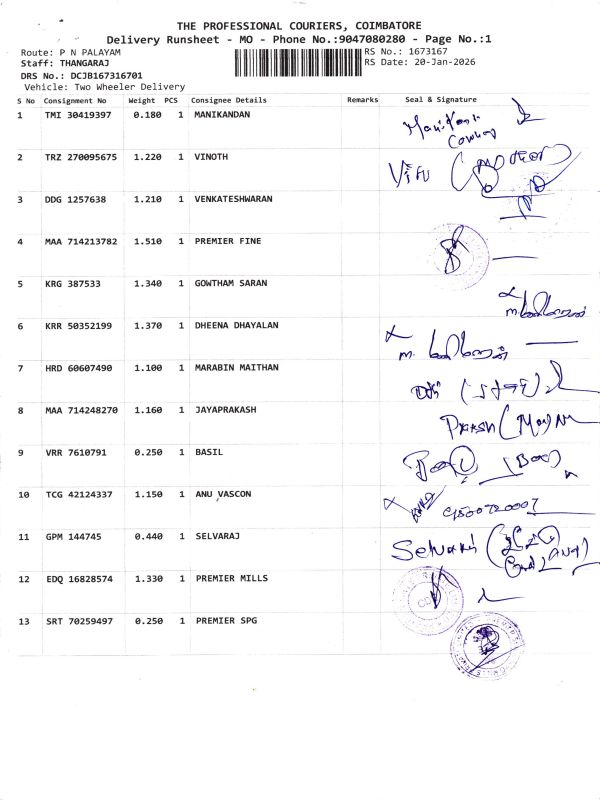 THE PROFESSIONAL COURIERS, COIMBATORE
Delivery Runsheet - MO - Phone No.:9047080280 - Page No.:1
Route: P N PALAYAM
RS No.: 1673167
Staff: THANGARAJ
RS Date: 20-Jan-2026
DRS No.: DCJB167316701
Vehicle: Two Wheeler Delivery
S No Consignment No Weight PCS Consignee Details Remarks Seal & Signature
1 TMI 30419397 0.180 1 MANIKANDAN
2 TRZ 270095675 1.220 1 VINOTH
3 DDG 1257638 1.210 1 VENKATESHWARAN
4 MAA 714213782 1.510 1 PREMIER FINE
5 KRG 387533 1.340 1 GOWTHAM SARAN
6 KRR 50352199 1.370 1 DHEENA DHAYALAN
7 HRD 60607490 1.100 1 MARABIN MAITHAN
8 MAA 714248270 1.160 1 JAYAPRAKASH
9 VRR 7610791 0.250 1 BASIL
10 TCG 42124337 1.150 1 ANU VASCON
11 GPM 144745 0.440 1 SELVARAJ
12 EDQ 16828574 1.330 1 PREMIER MILLS
13 SRT 70259497 0.250 1 PREMIER SPG